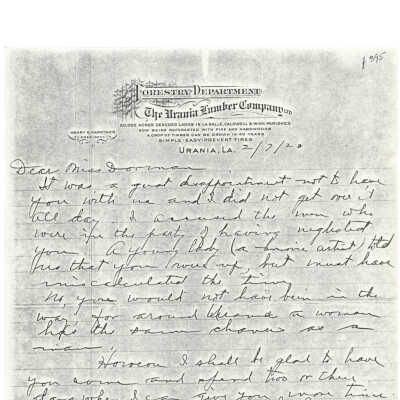 1395
FORESTRY DEPARTMENT
The Urania Lumber Company LTD
HENRY E. HARDTNER
PRESIDENT
80,000 ACRES DENUDED LANDS IN LA SALLE, CALDWELL & WINN PARISHES
NOW BEING REFORESTED WITH PINE AND HARDWOODS
A CROP OF TIMBER CAN BE GROWN IN 40 YEARS
SIMPLE-EASY-PREVENT FIRES
URANIA, LA. 2/7/20
Dear Miss Dorman
It was a great disappointment not to have
you with us and I did not get over it
all day. I accused the men who
were in the party of having neglected
you. A young lady (a movie artist) told
us that you over up, but must have
miscalculated the time.
No, you would not have been in the
way, for around Urania a woman
has the same chance as a
man.
However I shall be glad to have
you come and spend two or three
days when I can give you more time